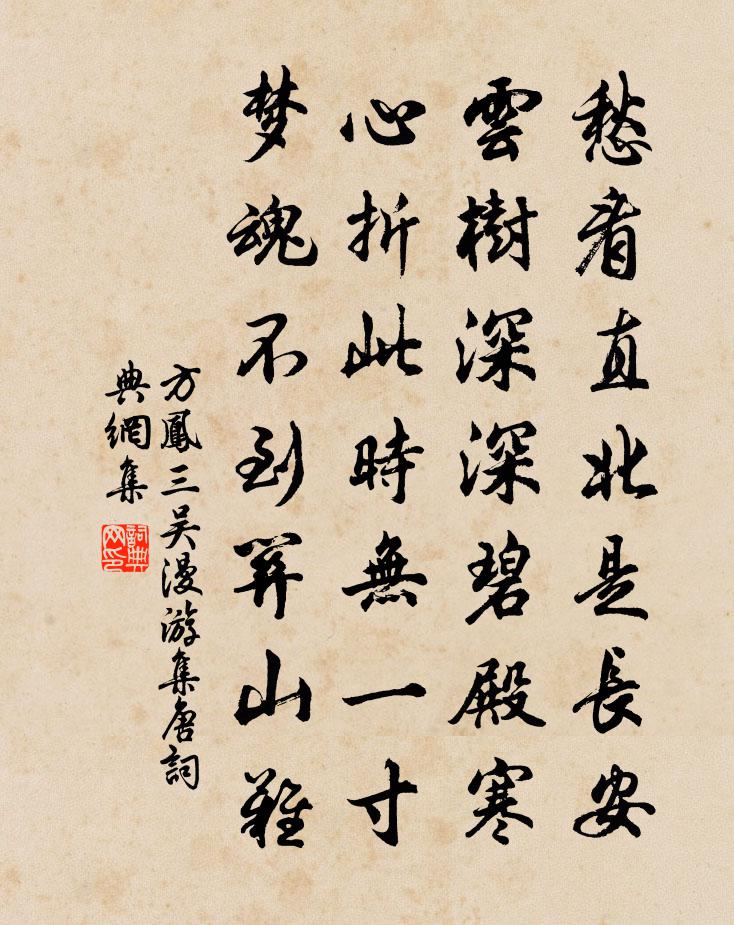 愁看直北是長安
雲樹深深碧殿寒
心折此時無一寸
梦魂不到關山難
方鳳三吴漫游集唐詞
典網集
詞典網印